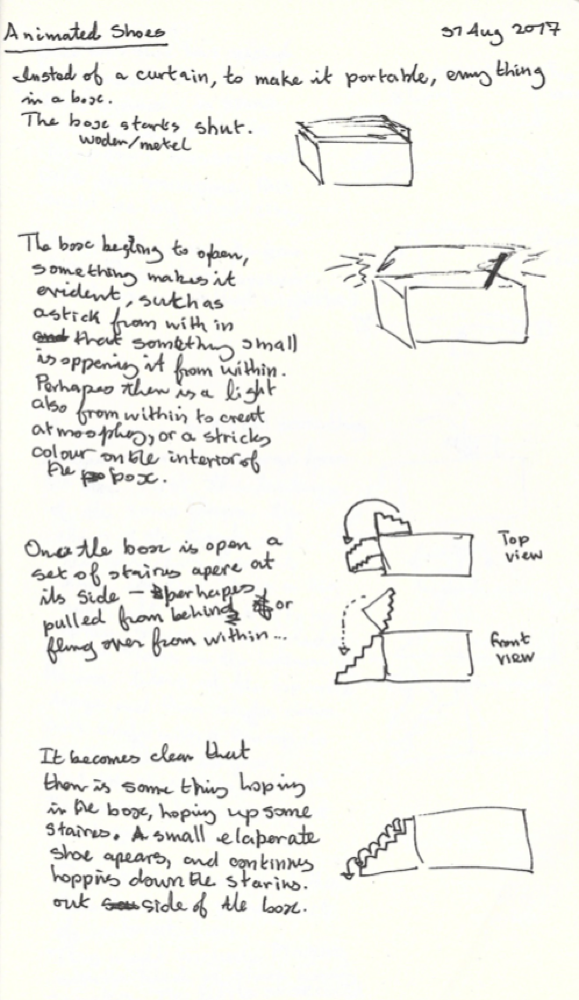 Animated Shoes
31 Aug 2017
Insted of a curtain, to make it portable, everything
in a box.
The box starts shut.
woden/metel
The box begting to open,
something makes it
evident, sutch as
a stick from with in
that something small
is oppening it from within.
Perhapes then is a light
also from within to creat
atmosphey, or a stricks
colour on the interior of
the box.
Once the box is open a
set of stairus apere at
its side - perhapes
pulled from behind or
flung over from within...
Top
view
front
view
It becomes clear that
then is some thing hoping
in the box, hoping up some
staires. A small elaperate
shoe apears, and continus
hoppins down the starins.
out side of the box.